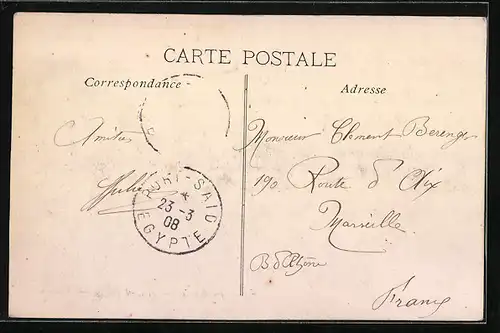 CARTE POSTALE
Correspondance
Amitiés
Julie
PORT-SAID
23 -3
08
EGYPTE
Adresse
Monsieur Clement Berenger
190 Route d'Aix
Marseille
France